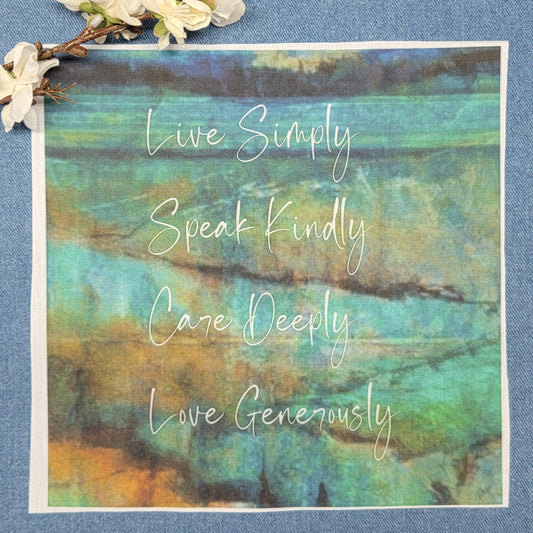 Live Simply
Speak Kindly
Care Deeply
Love Generously